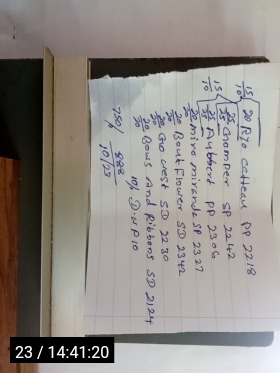 15/10 20 Rjo catteau PP 2218
15/10 25/25 Chomper SP 2242
25/25 Aubbert PP 2306
20/20 miro miranda SP 2327
20/20 Bout Flower SD 2342
20/20 Gro west SD 2230
20/20 Bows and Ribbons SD 2124
10% D.N.P 10
750/ 888
10/23
23 / 14:41:20